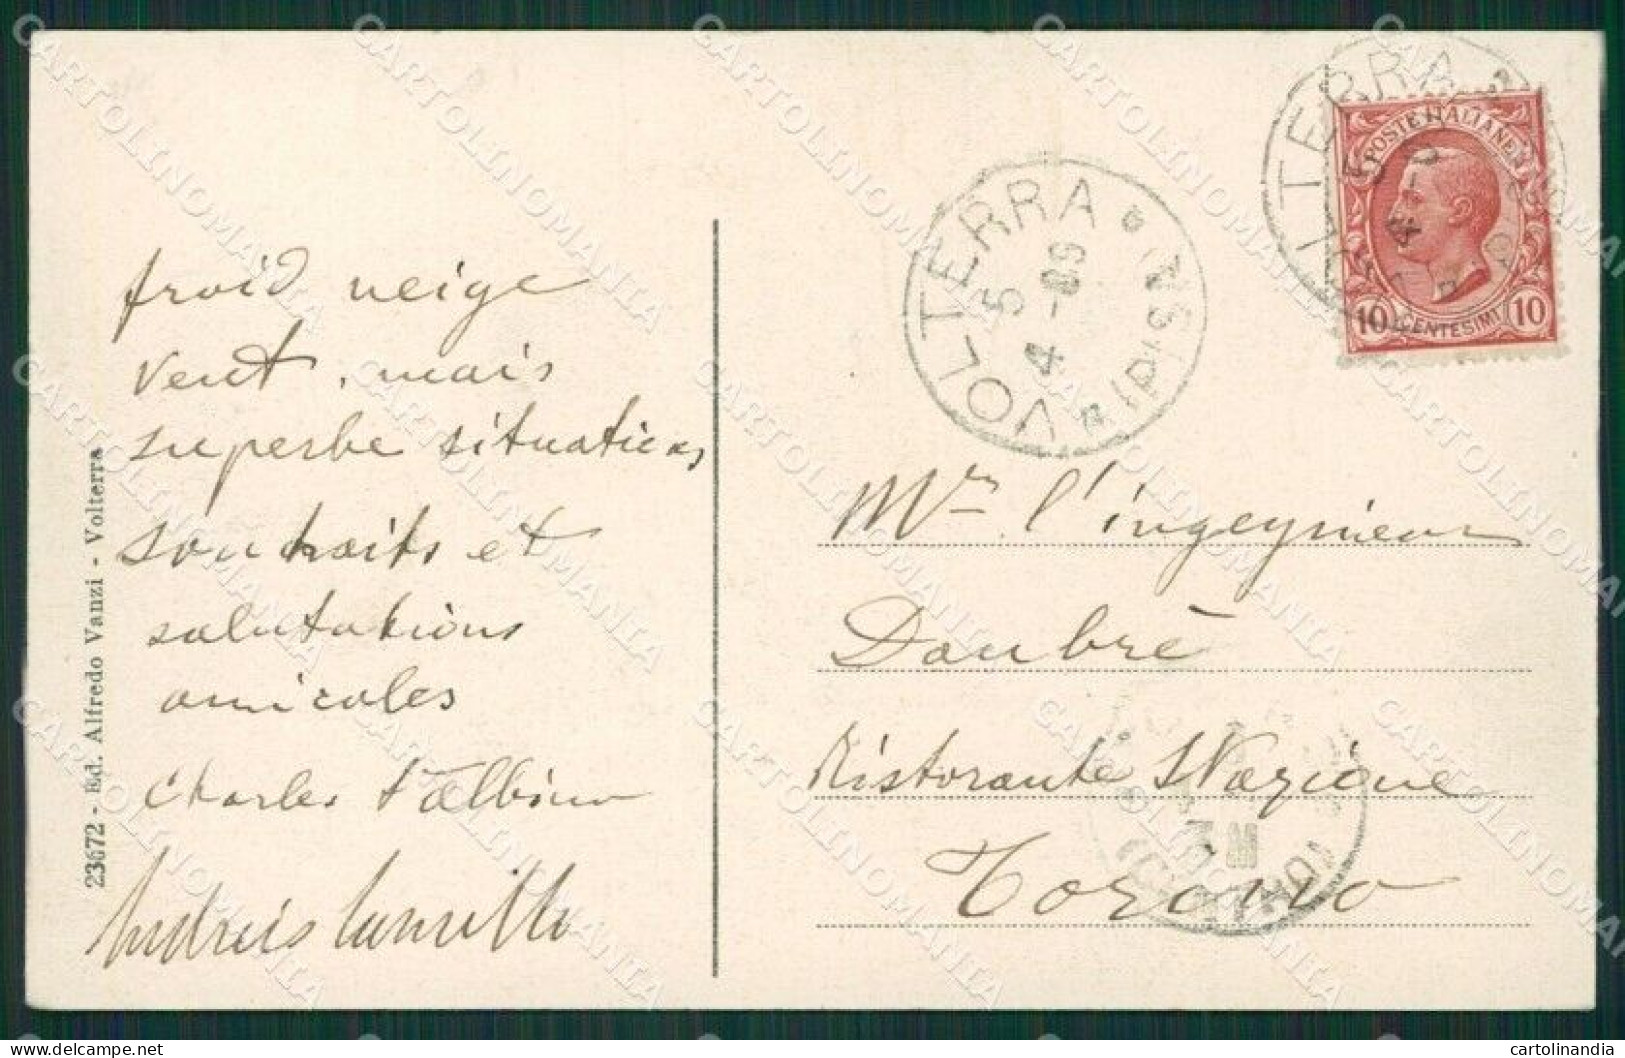 froid neige
vent, mais
superbe situation
souhaits et
salutations
amicales
Charles
23672 - Ed. Alfredo Vanzi - Volterra
VOLTERRA
(PISA)
5
4 - 09
POSTE ITALIANE
10 CENTESIMI 10
VOLTERRA
Mr l'ingeynieur
Daubrè
Ristorante Nazione
CARTOLINOMANIA
cartolinandia